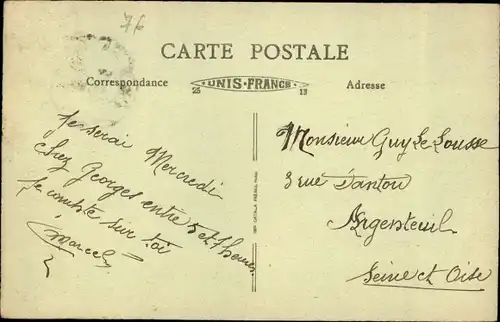 76
CARTE POSTALE
Correspondance
UNIS-FRANCE
25 13
Adresse
Je serai Mercredi
chez Georges entre 5 et 7 heures
Je compte sur toi
Marcel
Monsieur Guy Le Lousse
3 rue Danton
Argenteuil
Seine et Oise
IMP. CATALA FRÈRES, PARIS